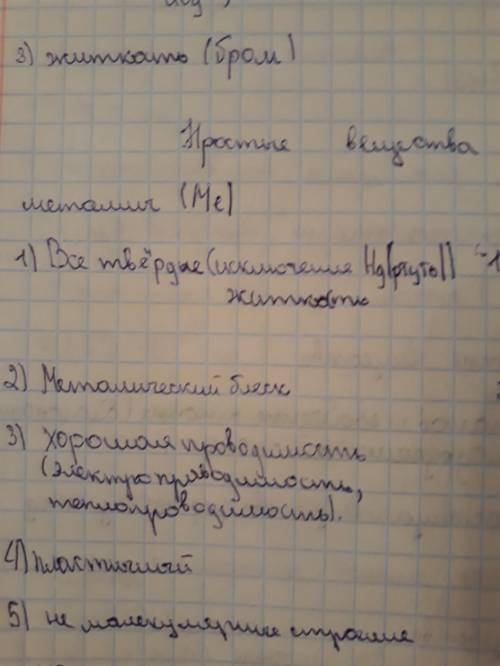 3) житкоть (бром)
Простые вещества
металлы (Ме)
1) Все твёрдые (исключения Hg (ртуть))
житкость
2) Металический блеск
3) хорошая проводимость
(электропроводимость,
теплопроводимость).
4) пластичный
5) не малекулярные строение